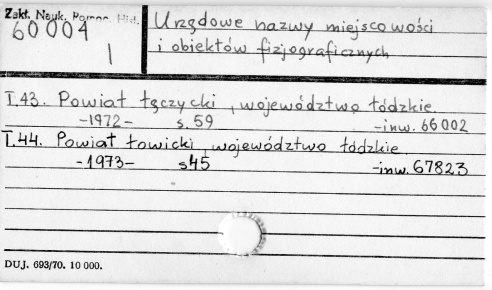 Zakł. Nauk. Pomoc. Hist.
60004
I
Urzędowe nazwy miejscowości
i obiektów fizjograficznych
T.43. Powiat łęczycki, województwo łódzkie.
-1972- s. 59 -inw. 66002
T.44. Powiat łowicki, województwo łódzkie.
-1973- s45 -inw. 67823
DUJ. 693/70. 10 000.